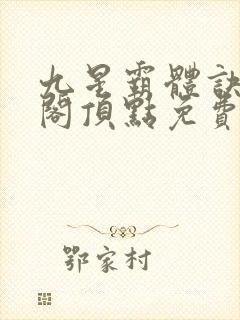 九星霸體訣
閣頂點免費
鄂家村